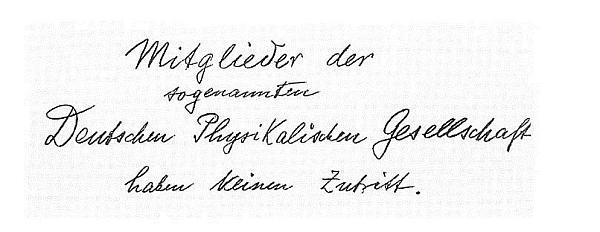 Mitglieder der
sogenannten
Deutschen Physikalischen Gesellschaft
haben keinen Zutritt.